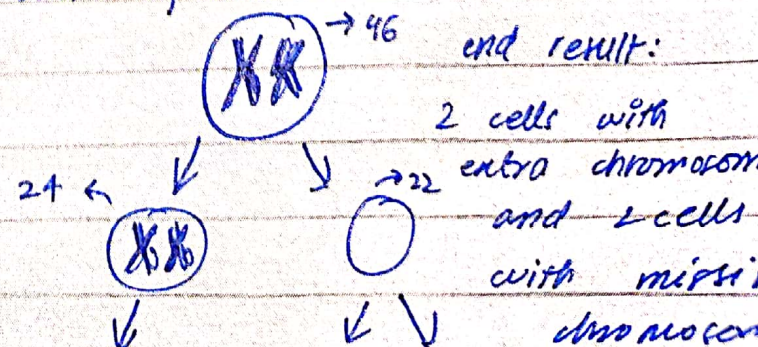 → 46
end result:
2 cells with
extra chromosom
24 ←
→ 22
and 2 cells
with missi
chromosom